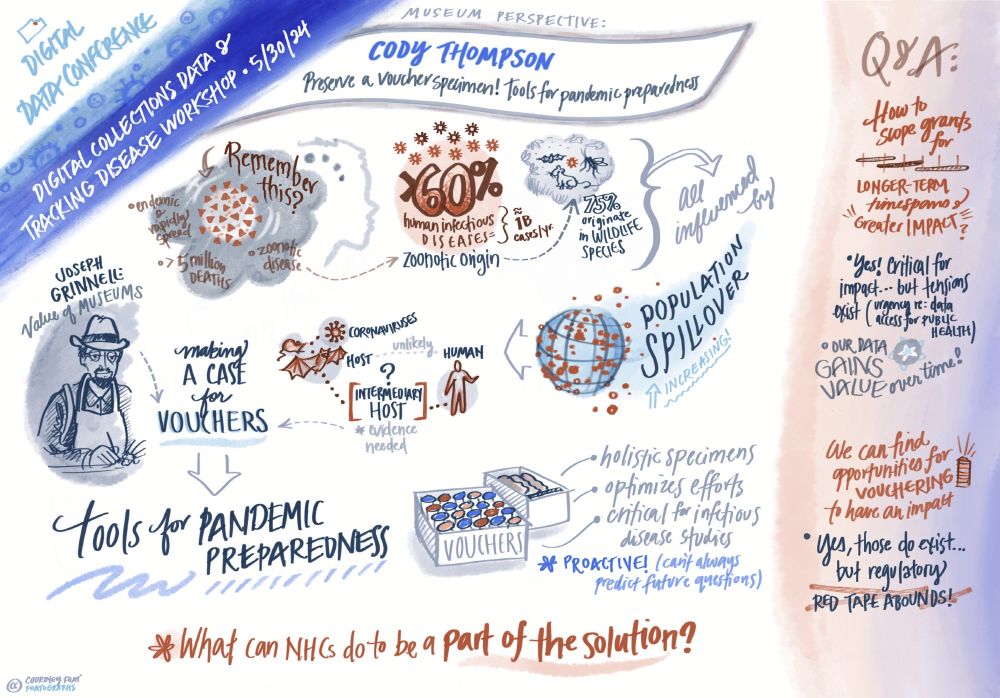 DIGITAL
DATA CONFERENCE
DIGITAL COLLECTIONS DATA &
TRACKING DISEASE WORKSHOP • 5/30/24
MUSEUM PERSPECTIVE:
CODY THOMPSON
Preserve a voucher specimen! Tools for pandemic preparedness
Remember
this?
• endemic &
rapidly
spread
• >5 million
DEATHS
• zoonotic
disease
>60%
human infectious
DISEASES =
zoonotic origin
≈
1B
cases/yr
75%
originate
in WILDLIFE
SPECIES
all
influenced
by
POPULATION
SPILLOVER
INCREASING!
CORONAVIRUSES
HOST
unlikely
HUMAN
?
[INTERMEDIARY
HOST]
* evidence
needed
JOSEPH
GRINNELL:
Value of MUSEUMS
making
A CASE
for
VOUCHERS
Tools for PANDEMIC
PREPAREDNESS
VOUCHERS
• holistic specimens
• optimizes efforts
• critical for infectious
disease studies
* PROACTIVE! (can't always
predict future questions)
* What can NHCs do to be a part of the solution?
Q&A:
How to
scope grants
for
LONGER-TERM
timespans &
Greater IMPACT?
• Yes! Critical for
impact... but tensions
exist (urgency re: data
access for PUBLIC
HEALTH)
• OUR DATA
GAINS
VALUE over time!
We can find
opportunities for
VOUCHERING
to have an impact
• Yes, those do exist...
but regulatory
RED TAPE ABOUNDS!
cc COURTNEY FOAT
FOATOGRAPHS